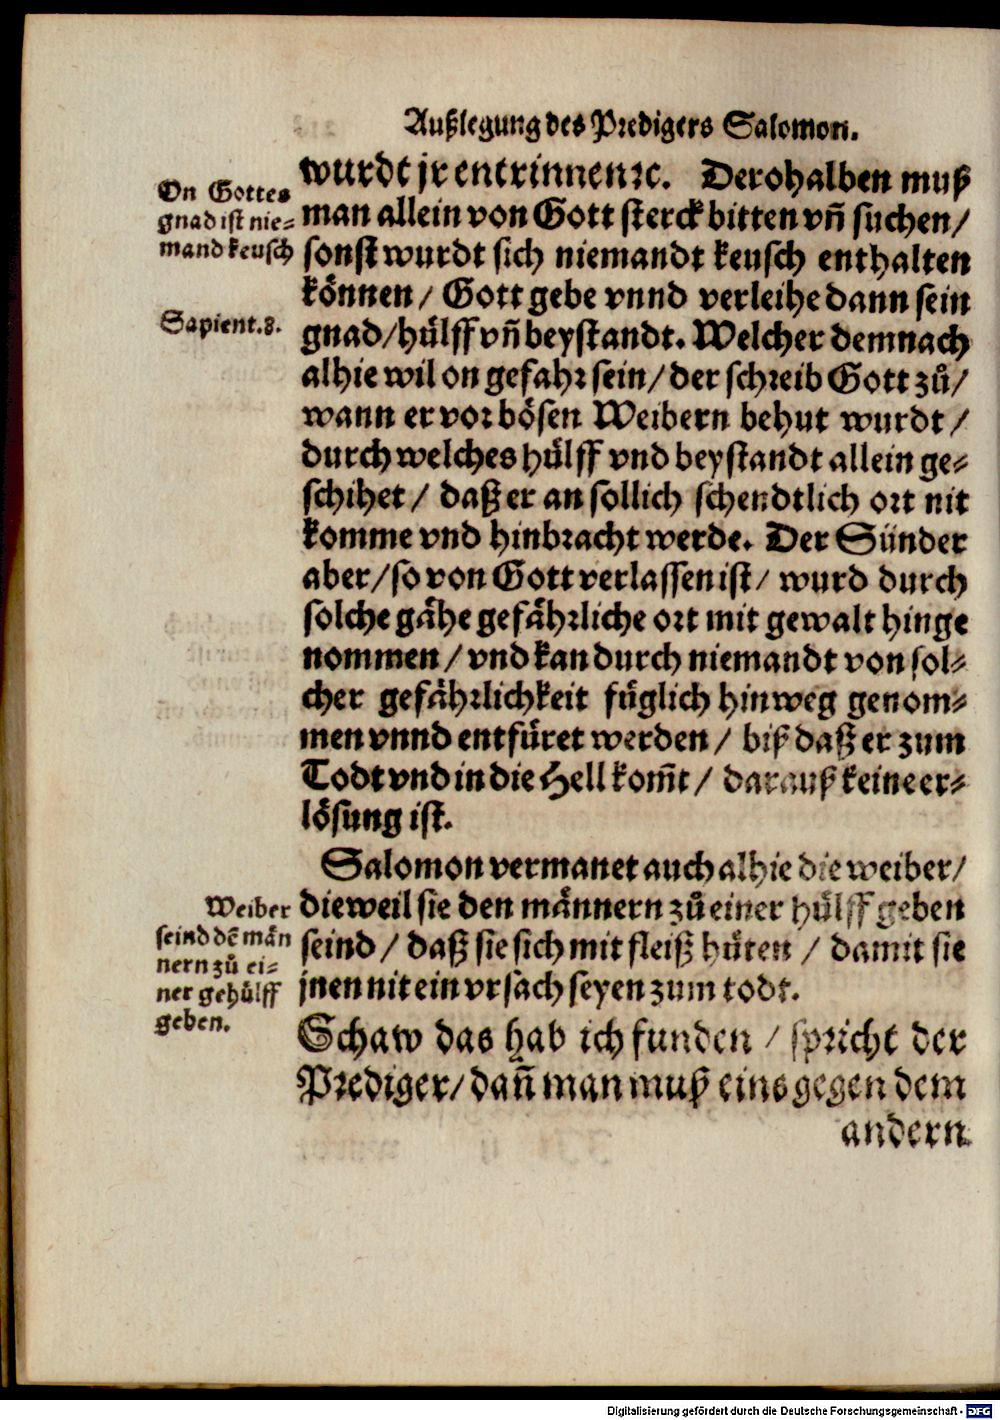 Außlegung des Predigers Salomon.
wurdt jr entrinnen ꝛc. Derohalben muß
man allein von Gott sterck bitten vñ suchen /
sonst wurdt sich niemandt keusch enthalten
können / Gott gebe vnnd verleihe dann sein
gnad / hülff vñ beystandt. Welcher demnach
alhie wil on gefahr sein / der schreib Gott zů /
wann er vor bösen Weibern behut wurdt /
durch welches hülff vnd beystandt allein ge⸗
schihet / daß er an sollich schendtlich ort nit
komme vnd hinbracht werde. Der Sünder
aber / so von Gott verlassen ist / wurd durch
solche gähe gefährliche ort mit gewalt hinge
nommen / vnd kan durch niemandt von sol⸗
cher gefährlichkeit füglich hinweg genom⸗
men vnnd entfüret werden / biß daß er zum
Todt vnd in die Hell kom̄t / darauß keine er⸗
lösung ist.
Salomon vermanet auch alhie die weiber /
dieweil sie den männern zů einer hülff geben
seind / daß sie sich mit fleiß hüten / damit sie
jnen nit ein vrsach seyen zum todt.
Schaw das hab ich funden / spricht der
Prediger / dañ man muß eins gegen dem
andern
On Gottes
gnad ist nie⸗
mand keusch
Sapient. 8.
Weiber
seind dē män
nern zů ei⸗
ner gehülff
geben.
Digitalisierung gefördert durch die Deutsche Forschungsgemeinschaft - DFG